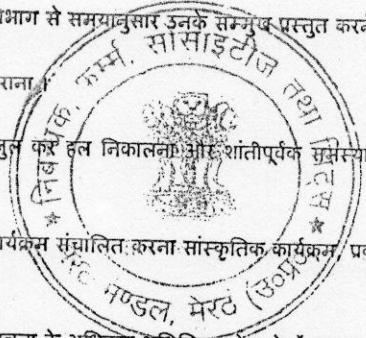 विभाग से समयानुसार उनके सम्मुख प्रस्तुत करन
राना ।
जुल कर हल निकालना और शांतीपूर्वक समस्या
कार्यक्रम संचालित करना सांस्कृतिक कार्यक्रम, प्र
निबन्धक, फर्म्स, सोसाइटीज तथा चिट्स
मण्डल, मेरठ (उ०प्र०)